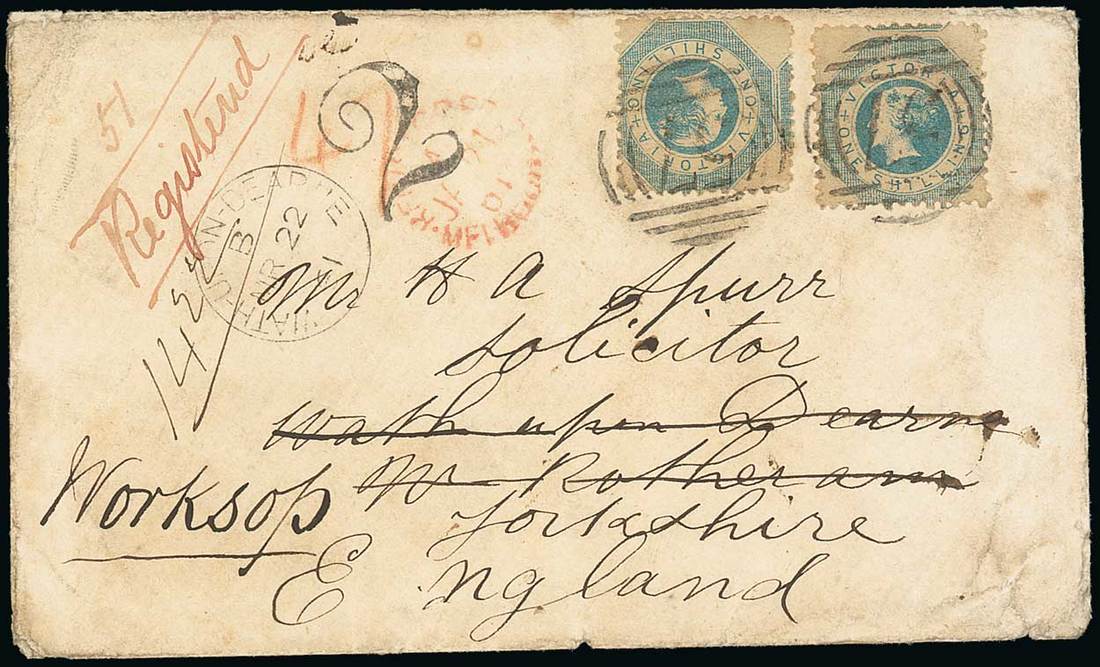 51
Registered
VICTORIA ONE SHILLING
VICTORIA ONE SHILLING
2
4
MELBOURNE
WATH-UPON-DEARNE
B
MR 22
Mr H A Spurr
Solicitor
Wath upon Dearne
Nr Rotheram
Worksop
Yorkshire
England